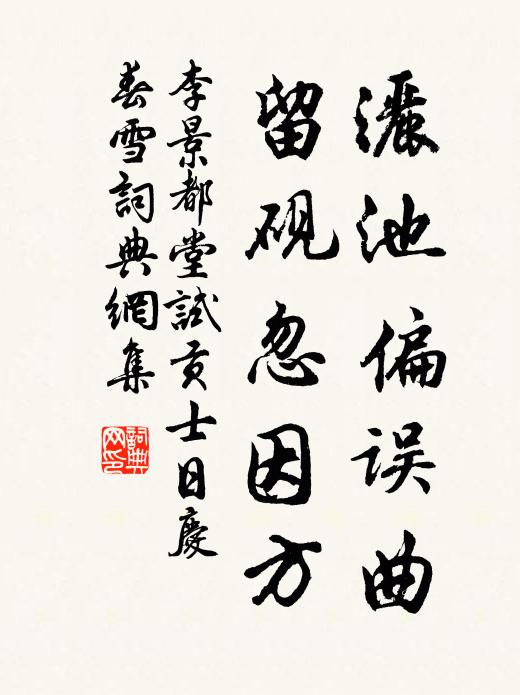 灑池偏误曲
留砚忽因方
李景都堂試贡士日慶
春雪詞典網集
詞典网印